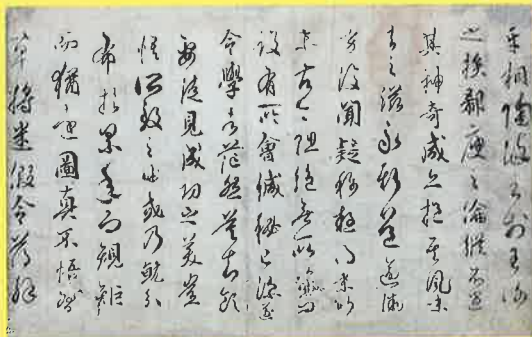 互相陶染至於王謝
之族郗庾之倫縱不盡
其神奇咸亦挹其風味
去之滋永斯道逾微
方復聞疑稱疑得末行
末古今阻絕無所質問
設有所會緘秘已深遂
令學者茫然莫知領
要徒見成功之美不
悟所致之由或乃就分
布於累年向規矩
而猶遠圖真不悟習
草將迷假令薄解